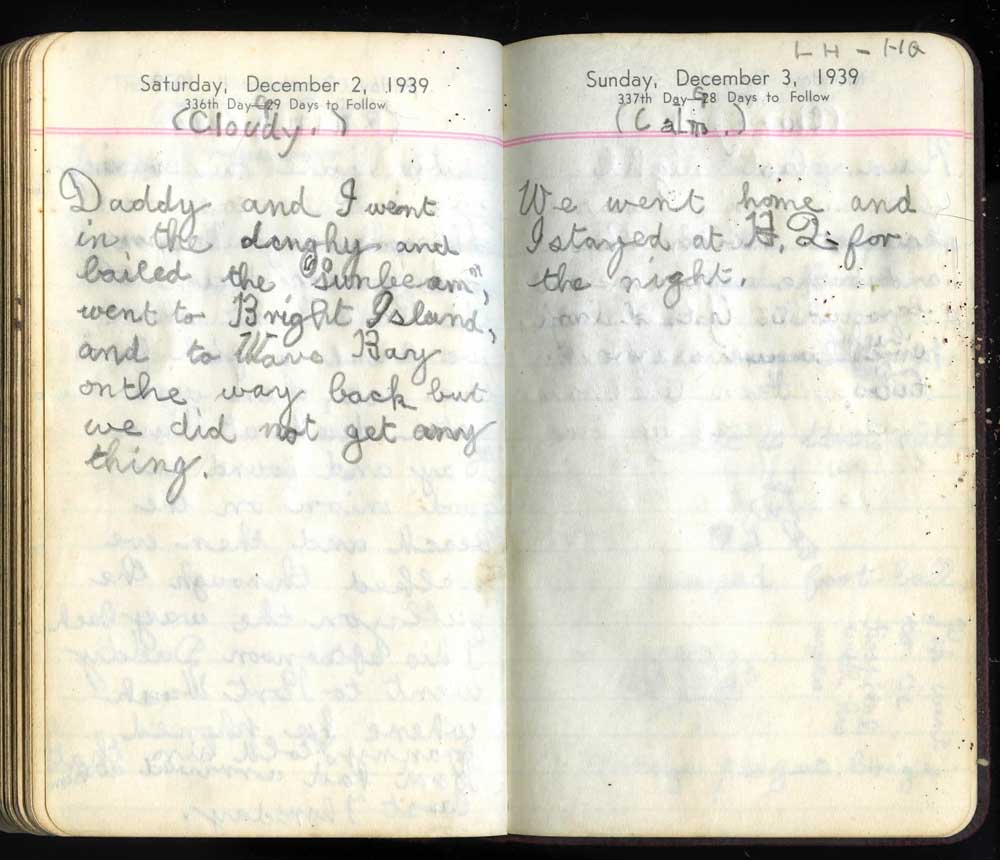 Saturday, December 2, 1939
336th Day—29 Days to Follow
(Cloudy.)
Daddy and I went
in the denghy and
bailed the "Sunbeam",
went to Bright Island,
and to Wave Bay
on the way back but
we did not get any
thing.
LH - HQ
Sunday, December 3, 1939
337th Day—28 Days to Follow
(Calm.)
We went home and
I stayed at H.Q. for
the night.